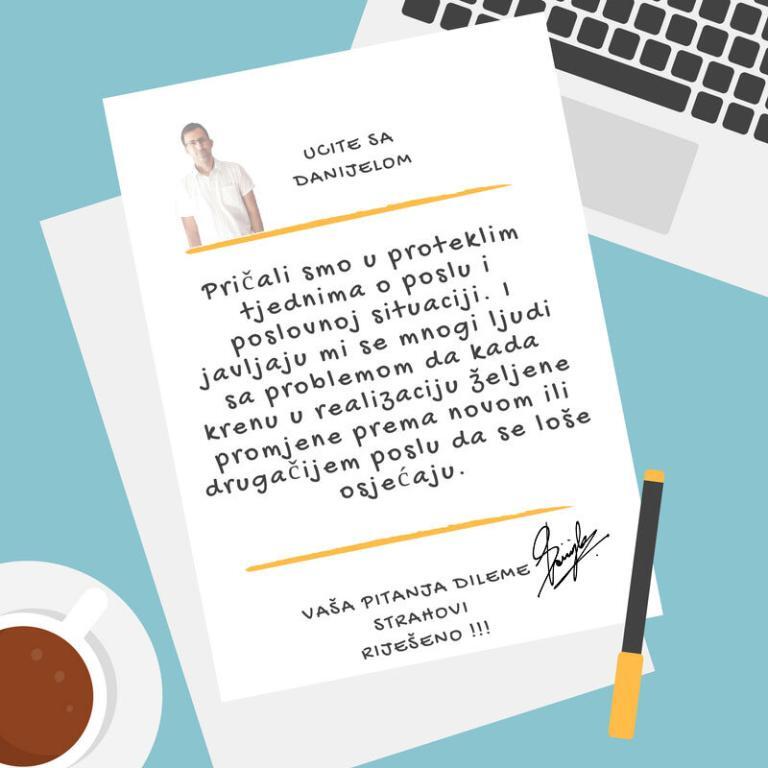 UCITE SA
DANIJELOM
Pričali smo u proteklim
tjednima o poslu i
poslovnoj situaciji. I
javljaju mi se mnogi ljudi
sa problemom da kada
krenu u realizaciju željene
promjene prema novom ili
drugačijem poslu da se loše
osjećaju.
VAŠA PITANJA DILEME
STRAHOVI
RIJEŠENO !!!